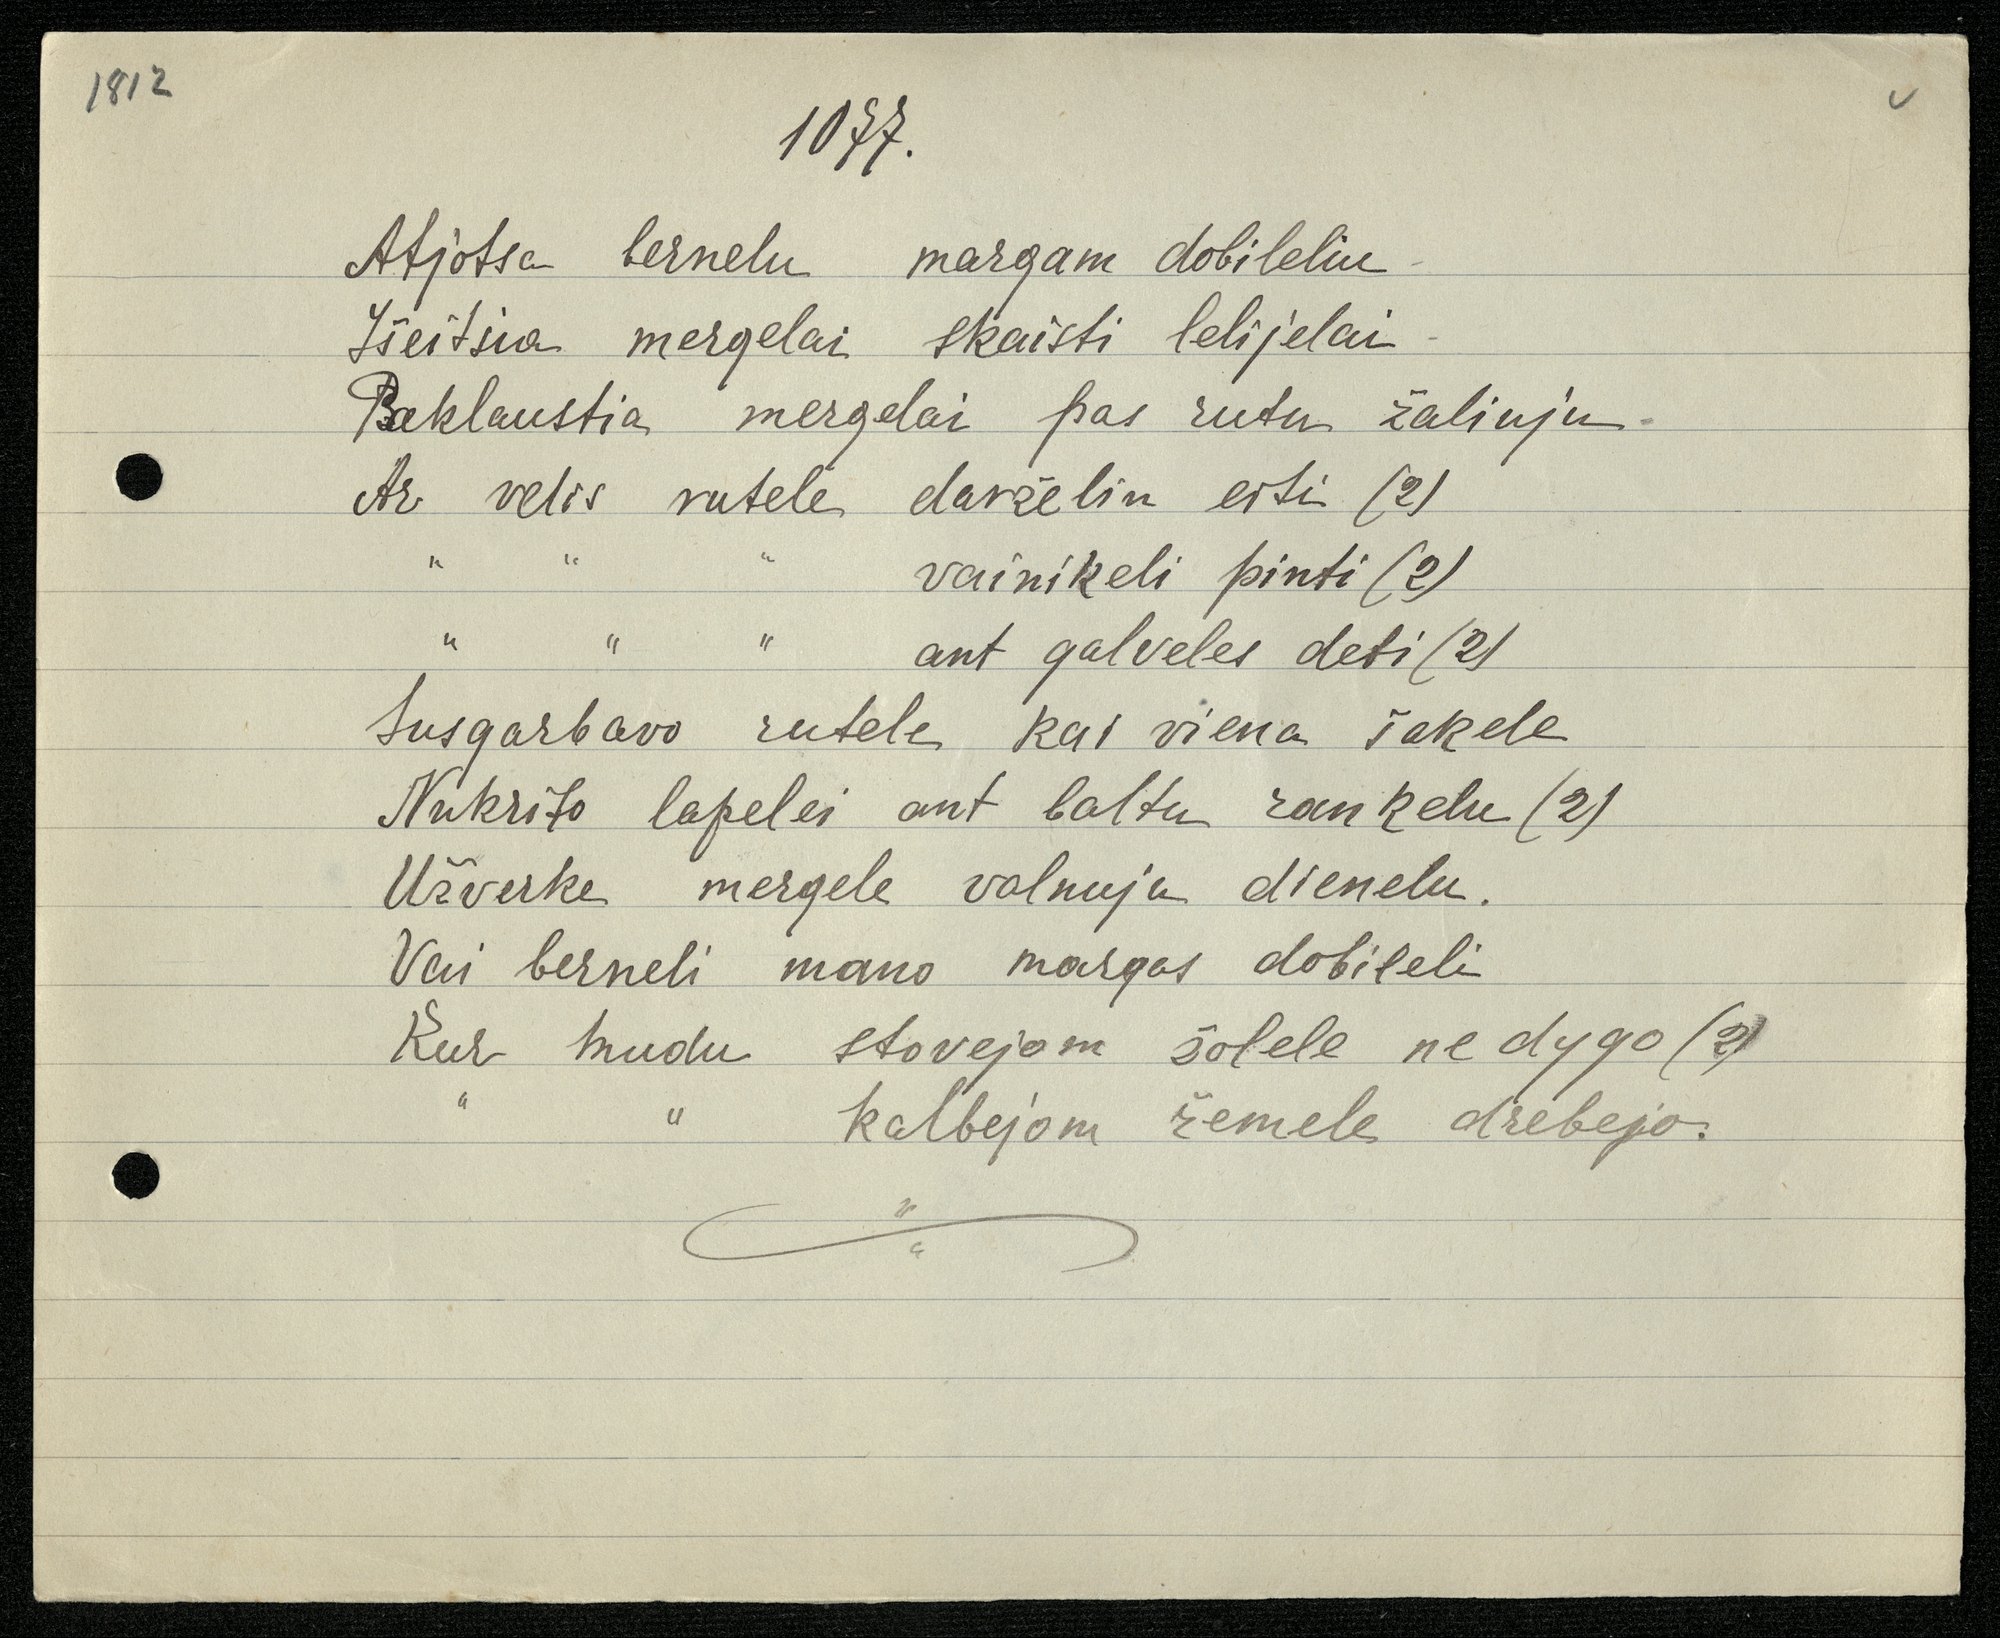 1812
1077.
Atjotsa bernelu margam dobileliu -
Išeitsia mergelai skaisti lelijelai -
Paklaustia mergelai pas rutu žaliuju -
Ar velis rutele darželin eiti (2)
" " " vainikeli pinti (2)
" " " ant galveles deti (2)
Susgarbavo rutele kai viena šakele
Nukrito lapelei ant baltu rankelu (2)
Užverke mergele valnuju dienelu.
Vai berneli mano margas dobileli
Kur mudu stovejom žolele ne dygo (2)
" " kalbejom žemele drebejo.